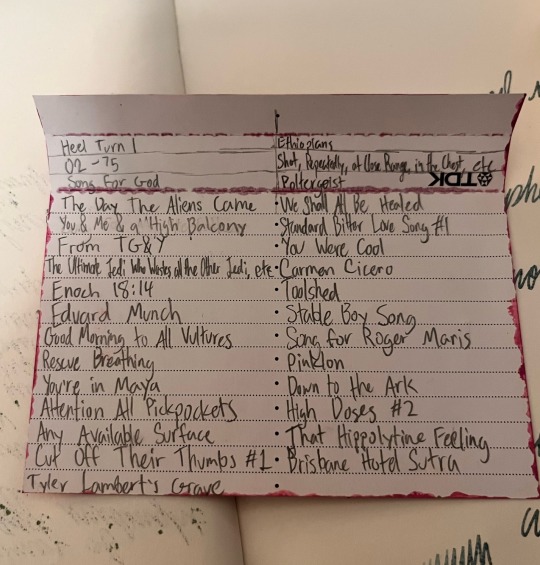 Heel Turn 1
02-75
Song For God
The Day The Aliens Came
You & Me & a High Balcony
From TG&Y
The Ultimate Jedi Who Wastes all the Other Jedi, etc
Enoch 18:14
Edvard Munch
Good Morning to All Vultures
Rescue Breathing
You're in Maya
Attention All Pickpockets
Any Available Surface
Cut Off Their Thumbs #1
Tyler Lambert's Grave
Ethiopians
Shot, Repeatedly, at Close Range, in the Chest, etc
Poltergeist
TDK
We Shall All Be Healed
Standard Bitter Love Song #1
You Were Cool
Carmen Cicero
Toolshed
Stable Boy Song
Song for Roger Maris
Pinklon
Down to the Ark
High Doses #2
That Hippolytine Feeling
Brisbane Hotel Sutra